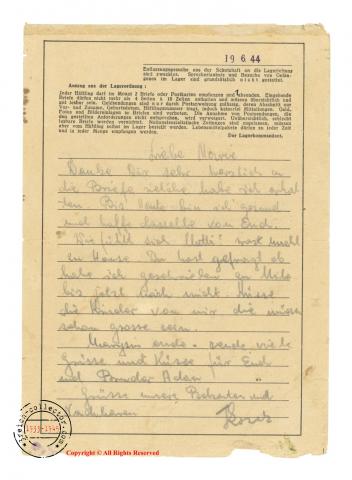 19 6. 44
Entlassungsgesuche aus der Schutzhaft an die Lagerleitung
sind zwecklos. Sprecherlaubnis und Besuche von Gefan-
genen im Lager sind grundsätzlich nicht gestattet.
Auszug aus der Lagerordnung:
Jeder Häftling darf im Monat 2 Briefe oder Postkarten empfangen und absenden. Eingehende
Briefe dürfen nicht mehr als 4 Seiten à 15 Zeilen enthalten und müssen übersichtlich und
gut lesbar sein. Geldsendungen sind nur durch Postanweisung zulässig, deren Abschnitt nur
Vor- und Zuname, Geburtsdatum, Häftlingsnummer trägt, jedoch keinerlei Mitteilungen. Geld,
Fotos und Bildereinlagen in Briefen sind verboten. Die Annahme von Postsendungen, die
den gestellten Anforderungen nicht entsprechen, wird verweigert. Unübersichtliche, schlecht
lesbare Briefe werden vernichtet. Nationalsozialistische Zeitungen sind zugelassen, müssen
aber vom Häftling selbst im Lager bestellt werden. Lebensmittelpakete dürfen zu jeder Zeit
und in jeder Menge empfangen werden.
Der Lagerkommandant.
Liebe
Danke Dir sehr herzlich an
die Briefe welche habe ich erhal
ten Bis heute bin ich gesund
und hoffe dasselbe von Euch.
Wie fühlt sich was macht
zu Hause Du hast gefragt ob
habe ich geschrieben an
bis jetzt noch nicht Küsse
die Kinder von mir die müssen
schon grosse sein.
ende - sende viele
Grüsse und Küsse für Euch
und Bruder Adam
Grüsse unsere Bekanten und
Nachbaren
third-reich-collector.com
1933-1945
Copyright © All Rights Reserved